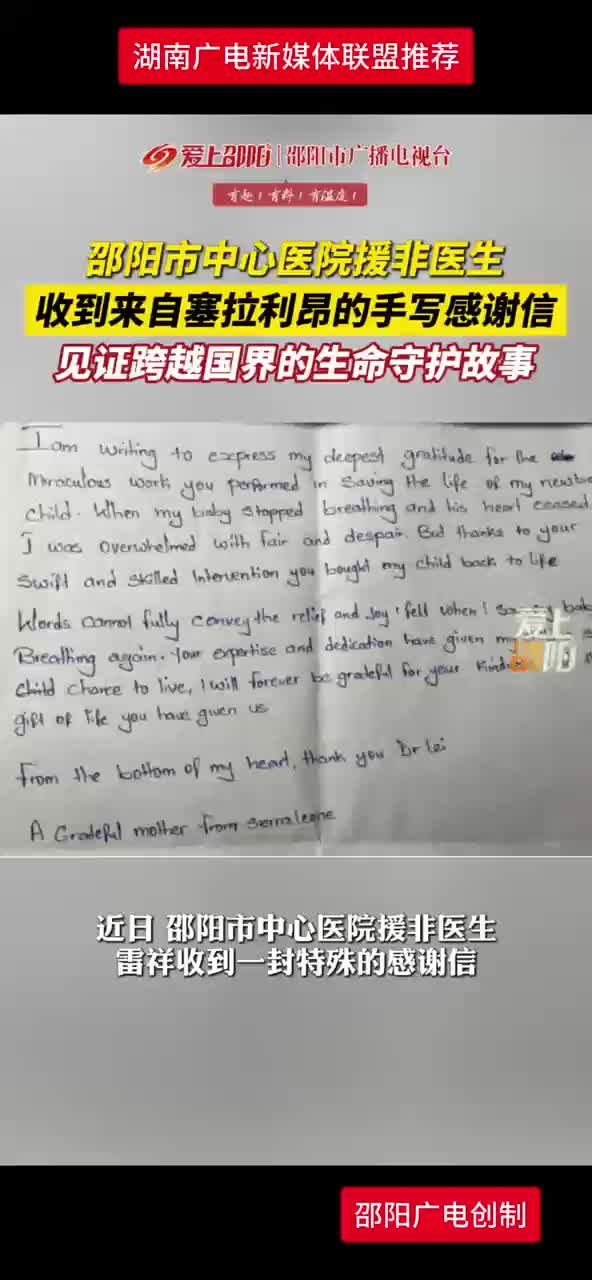 湖南广电新媒体联盟推荐
爱上邵阳 | 邵阳市广播电视台
有趣！有料！有温度！
邵阳市中心医院援非医生
收到来自塞拉利昂的手写感谢信
见证跨越国界的生命守护故事
I am writing to express my deepest gratitude for the
Miraculous work you performed in saving the life of my newbo
child. When my baby stopped breathing and his heart ceased
I was overwhelmed with fair and despair. But thanks to your
Swift and skilled Intervention you bought my child back to life
Words cannot fully convey the relief and Joy I fell when I bab
Breathing again. Your expertise and dedication have given
child chance to live, I will forever be grateful for your
gift of life you have given us
From the bottom of my heart, thank you Dr Lei
A Grateful mother from Sierraleone
爱上
邵阳
近日 邵阳市中心医院援非医生
雷祥收到一封特殊的感谢信
邵阳广电创制